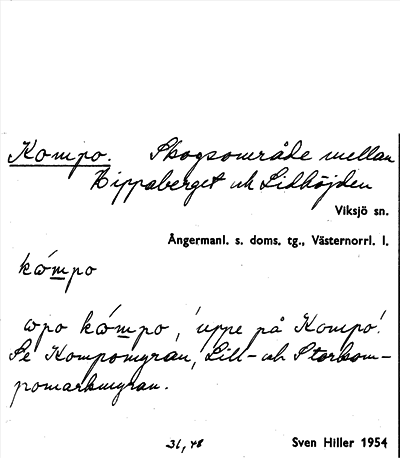 Kompo. Skogsområde mellan
Kippaberget och Lidhöjden
Viksjö sn.
Ångermanl. s. doms. tg., Västernorrl. l.
kómpo
opo kómpo, 'uppe på Kompo'.
Se Kompomyran, Lill- och Storkom-
pomarkmyran.
31, 48 Sven Hiller 1954